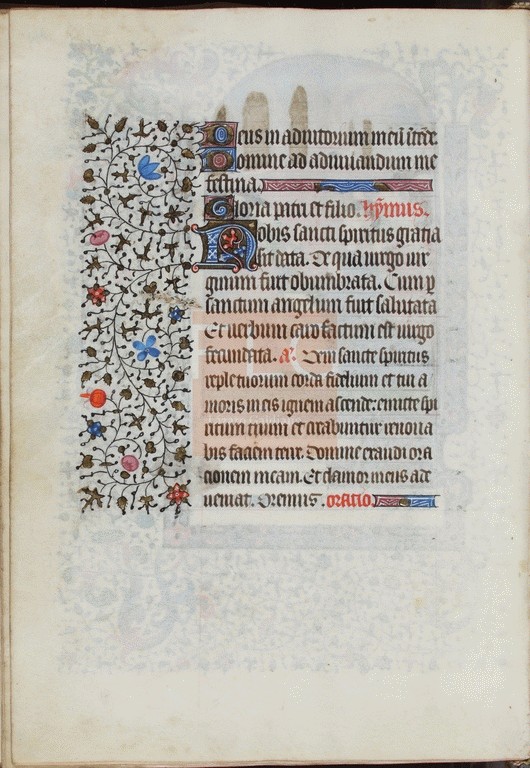 Deus in adiutorium meū ītēde
Domine ad adiuuandum me
festina.
Gloria patri et filio. hȳmus.
Nobis sancti spiritus gratia
sit data. De qua uirgo uir
ginum fuit obumbrata. Cum p
sanctum angelum fuit salutata
Et uerbum caro factum est uirgo
fecundata. a. Veni sancte spiritus
reple tuorum corda fidelium et tui a
moris in eis ignem ascende: emitte spi
ritum tuum et creabuntur renoua
bis faciem terre. Domine exaudi ora
cionem meam. Et clamor meus ad te
ueniat. Oremus. oratio